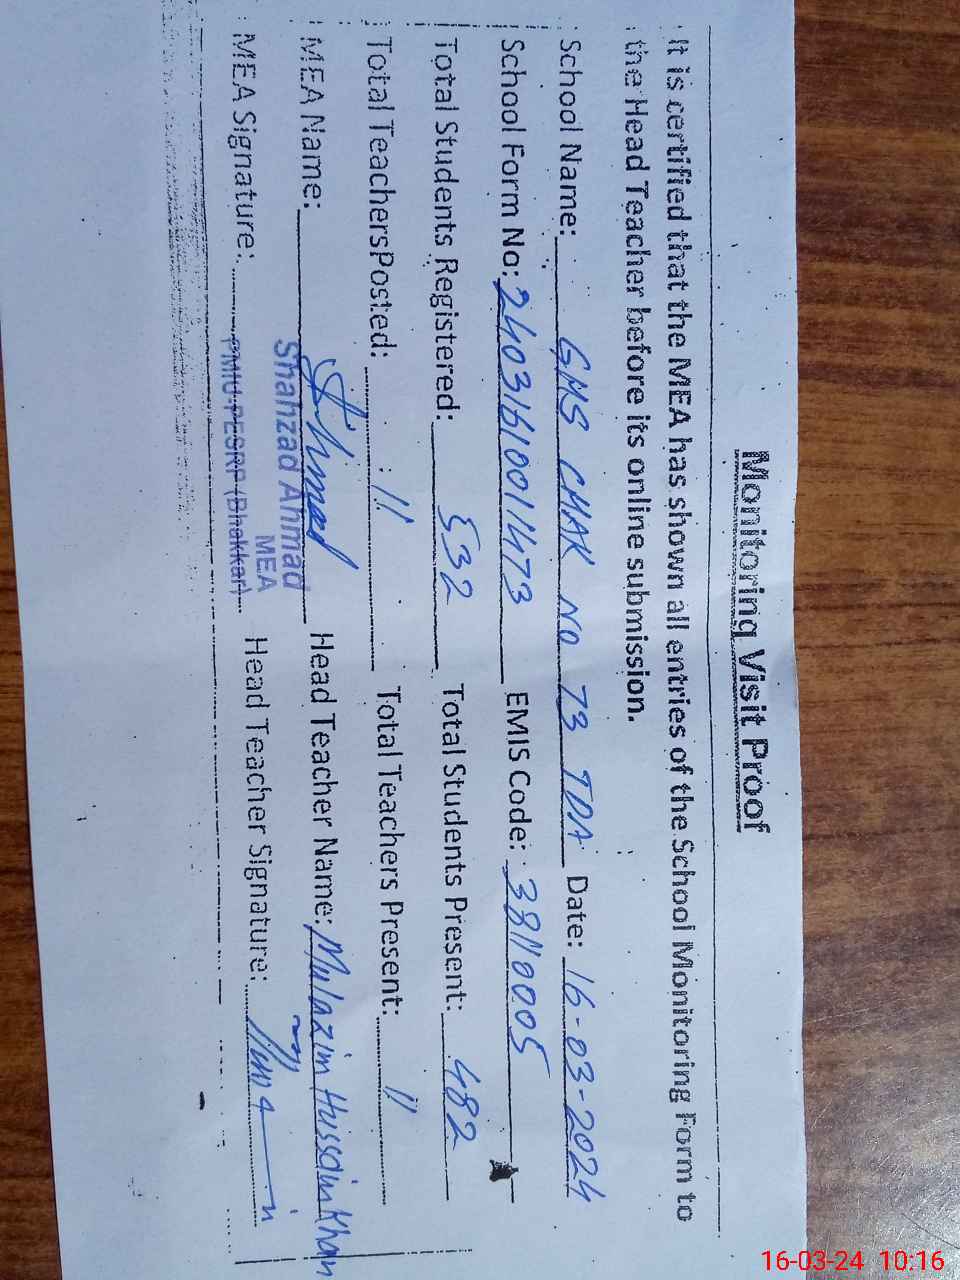 Monitoring Visit Proof
It is certified that the MEA has shown all entries of the School Monitoring Form to
the Head Teacher before its online submission.
School Name: GMS CHAK NO 73 TDA Date: 16-03-2024
School Form No: 24031610011473 EMIS Code: 38110005
Total Students Registered: 532 Total Students Present: 482
Total TeachersPosted: 11 Total Teachers Present: 11
MEA Name: Head Teacher Name: Mulazim Hussain Khan
Shahzad Ahmad
MEA
MEA Signature: PMIU-PESRP (Bhakkar) Head Teacher Signature:
16-03-24 10:16